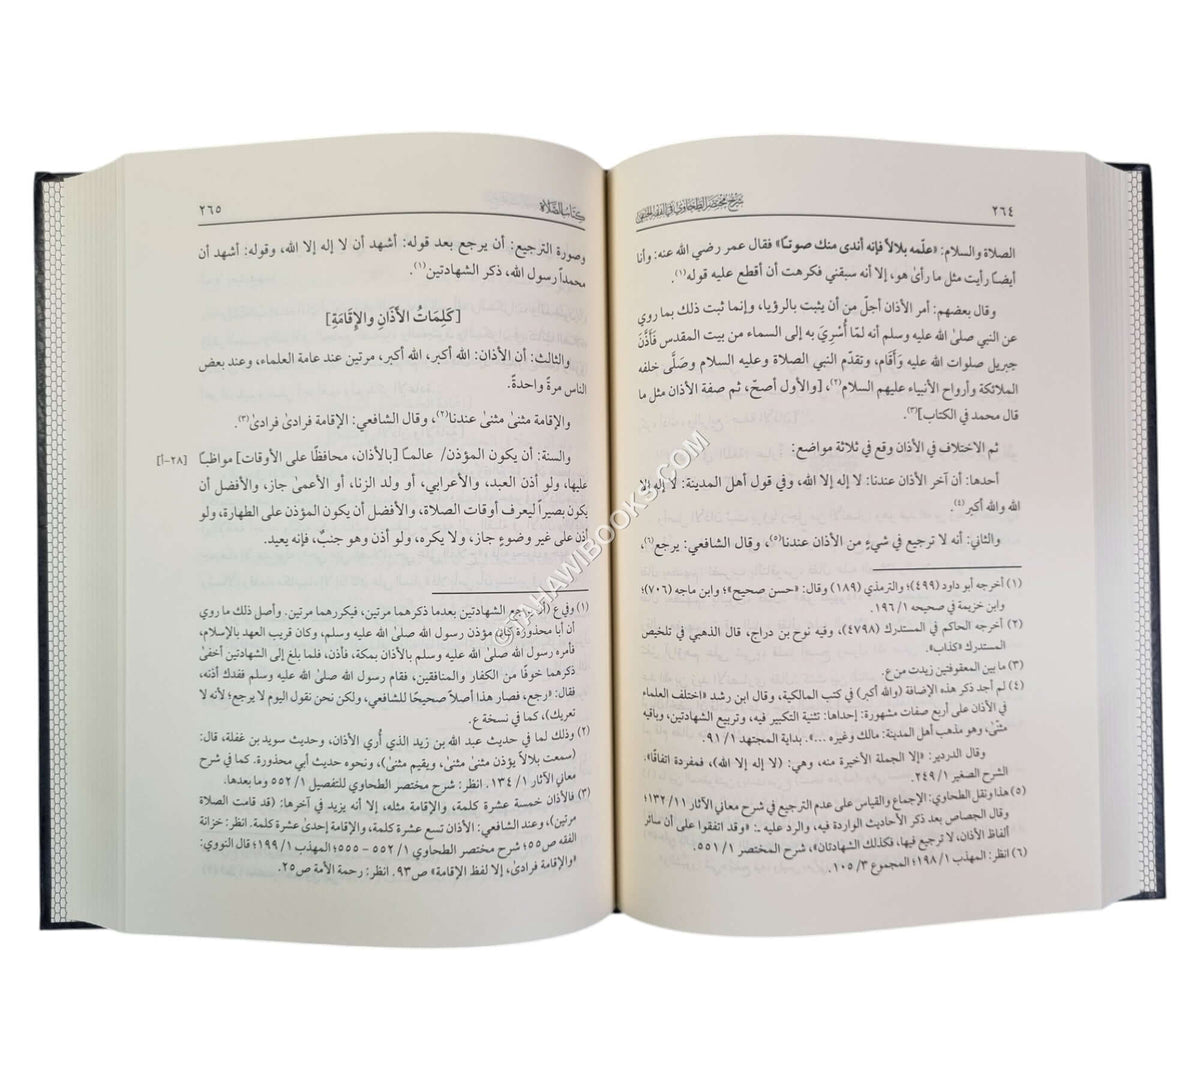 شرح مختصر الطحاوي في الفقه الحنفي
٢٦٤
الصلاة والسلام: «علّمه بلالاً فإنه أندى منك صوتاً» فقال عمر رضي الله عنه: وأنا
أيضاً رأيت مثل ما رأىٰ هو، إلا أنه سبقني فكرهت أن أقطع عليه قوله(١).
وقال بعضهم: أمر الأذان أجلّ من أن يثبت بالرؤيا، وإنما ثبت ذلك بما روي
عن النبي صلىٰ الله عليه وسلم أنه لمّا أُسْرِيَ به إلى السماء من بيت المقدس فَأَذَّنَ
جبريل صلوات الله عليه وَأَقَام، وتقدّم النبي الصلاة وعليه السلام وصَلَّى خلفه
الملائكة وأرواح الأنبياء عليهم السلام(٢)، [والأول أصحّ، ثم صفة الأذان مثل ما
قال محمد في الكتاب](٣).
ثم الاختلاف في الأذان وقع في ثلاثة مواضع:
أحدها: أن آخر الأذان عندنا: لا إله إلا الله، وفي قول أهل المدينة: لا إله إلا
الله والله أكبر(٤).
والثاني: أنه لا ترجيع في شيءٍ من الأذان عندنا(٥)، وقال الشافعي: يرجع(٦)،
(١) أخرجه أبو داود (٤٩٩)؛ والترمذي (١٨٩) وقال: «حسن صحيح»؛ وابن ماجه (٧٠٦)؛
وابن خزيمة في صحيحه ١/ ١٩٦.
(٢) أخرجه الحاكم في المستدرك (٤٧٩٨)، وفيه نوح بن دراج، قال الذهبي في تلخيص
المستدرك «كذاب».
(٣) ما بين المعقوفتين زيدت من ع.
(٤) لم أجد ذكر هذه الإضافة (والله أكبر) في كتب المالكية، وقال ابن رشد «اختلف العلماء
في الأذان على أربع صفات مشهورة: إحداها: تثنية التكبير فيه، وتربيع الشهادتين، وباقيه
مثنىٰ، وهو مذهب أهل المدينة: مالك وغيره ...». بداية المجتهد ١/ ٩١.
وقال الدردير: «إلا الجملة الأخيرة منه، وهي: (لا إله إلا الله)، فمفردة اتفاقًا».
الشرح الصغير ١/ ٢٤٩.
(٥) هذا ونقل الطحاوي: الإجماع والقياس على عدم الترجيع في شرح معاني الآثار ١١/ ١٣٢؛
وقال الجصاص بعد ذكر الأحاديث الواردة فيه، والرد عليه .: «وقد اتفقوا على أن سائر
ألفاظ الأذان، لا ترجيع فيها، فكذلك الشهادتان»، شرح المختصر ١/ ٥٥١.
(٦) انظر: المهذب ١/ ١٩٨؛ المجموع ٣/ ١٠٥.
كتاب الصلاة
٢٦٥
وصورة الترجيع: أن يرجع بعد قوله: أشهد أن لا إله إلا الله، وقوله: أشهد أن
محمداً رسول الله، ذكر الشهادتين(١).
[كَلِمَاتُ الأَذَانِ والإِقَامَةِ]
والثالث: أن الأذان: الله أكبر، الله أكبر، مرتين عند عامة العلماء، وعند بعض
الناس مرةً واحدةً.
والإقامة مثنىٰ مثنىٰ عندنا(٢)، وقال الشافعي: الإقامة فرادىٰ فرادىٰ(٣).
والسنة: أن يكون المؤذن/ عالماً [بالأذان، محافظًا على الأوقات] مواظباً [٢٨-أ]
عليها، ولو أذن العبد، والأعرابي، أو ولد الزنا، أو الأعمىٰ جاز، والأفضل أن
يكون بصيراً ليعرف أوقات الصلاة، والأفضل أن يكون المؤذن على الطهارة، ولو
أذن على غير وضوءٍ جاز، ولا يكره، ولو أذن وهو جنبٌ، فإنه يعيد.
(١) وفي ع (أن يرجع الشهادتين بعدما ذكرهما مرتين، فيكررهما مرتين. وأصل ذلك ما روي
أن أبا محذورة كان مؤذن رسول الله صلىٰ الله عليه وسلم، وكان قريب العهد بالإسلام،
فأمره رسول الله صلىٰ الله عليه وسلم بالأذان بمكة، فأذن، فلما بلغ إلى الشهادتين أخفىٰ
ذكرهما خوفًا من الكفار والمنافقين، فقام رسول الله صلىٰ الله عليه وسلم فقدك أذنه،
فقال: «رجع، فصار هذا أصلاً صحيحًا للشافعي، ولكن نحن نقول اليوم لا يرجع؛ لأنه لا
تعريك)، كما في نسخة ع.
(٢) وذلك لما في حديث عبد الله بن زيد الذي أُري الأذان، وحديث سويد بن غفلة، قال:
(سمعت بلالاً يؤذن مثنىٰ مثنىٰ، ويقيم مثنىٰ)، ونحوه حديث أبي محذورة. كما في شرح
معاني الآثار ١/ ١٣٤. انظر: شرح مختصر الطحاوي للتفصيل ١/ ٥٥٢ وما بعدها.
(٣) فالأذان خمسة عشرة كلمة، والإقامة مثله، إلا أنه يزيد في آخرها: (قد قامت الصلاة
مرتين)، وعند الشافعي: الأذان تسع عشرة كلمة، والإقامة إحدىٰ عشرة كلمة. انظر: خزانة
الفقه ص٥٥؛ شرح مختصر الطحاوي ١/ ٥٥٢ - ٥٥٥؛ المهذب ١/ ١٩٩؛ قال النووي:
«والإقامة فرادىٰ، إلا لفظ الإقامة» ص٩٣. انظر: رحمة الأمة ص٢٥.
©TAHAWIBOOKS.COM